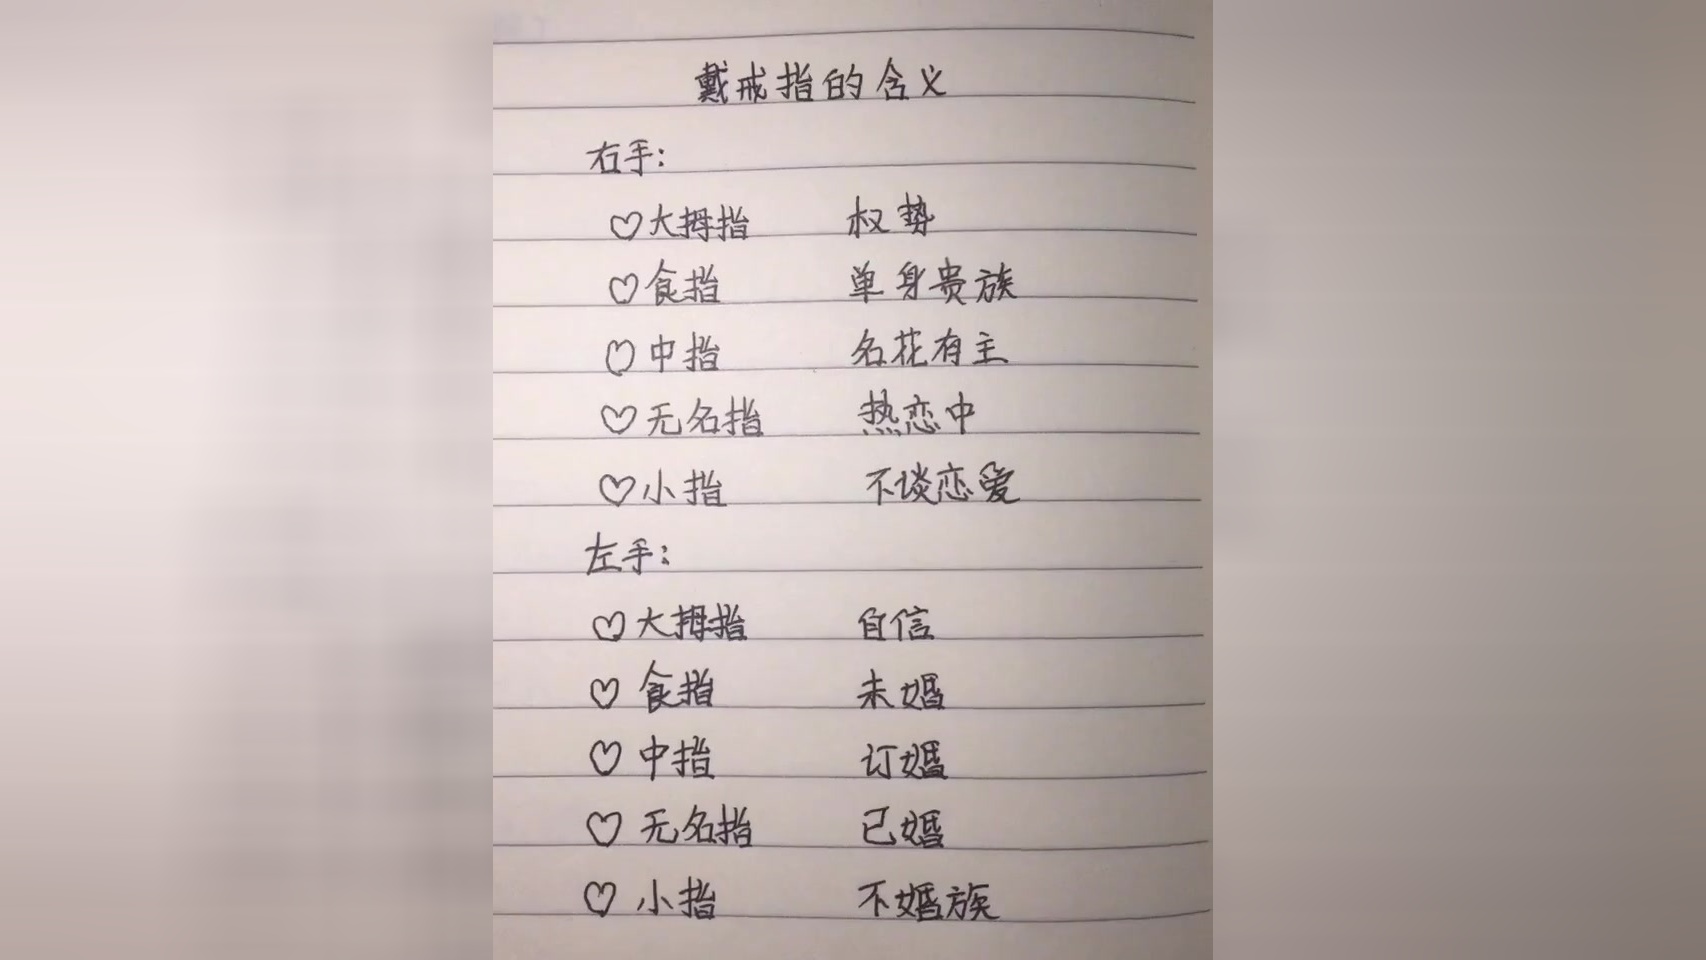 戴戒指的含义
右手:
♡大拇指 权势
♡食指 单身贵族
♡中指 名花有主
♡无名指 热恋中
♡小指 不谈恋爱
左手:
♡大拇指 自信
♡食指 未婚
♡中指 订婚
♡无名指 已婚
♡小指 不婚族